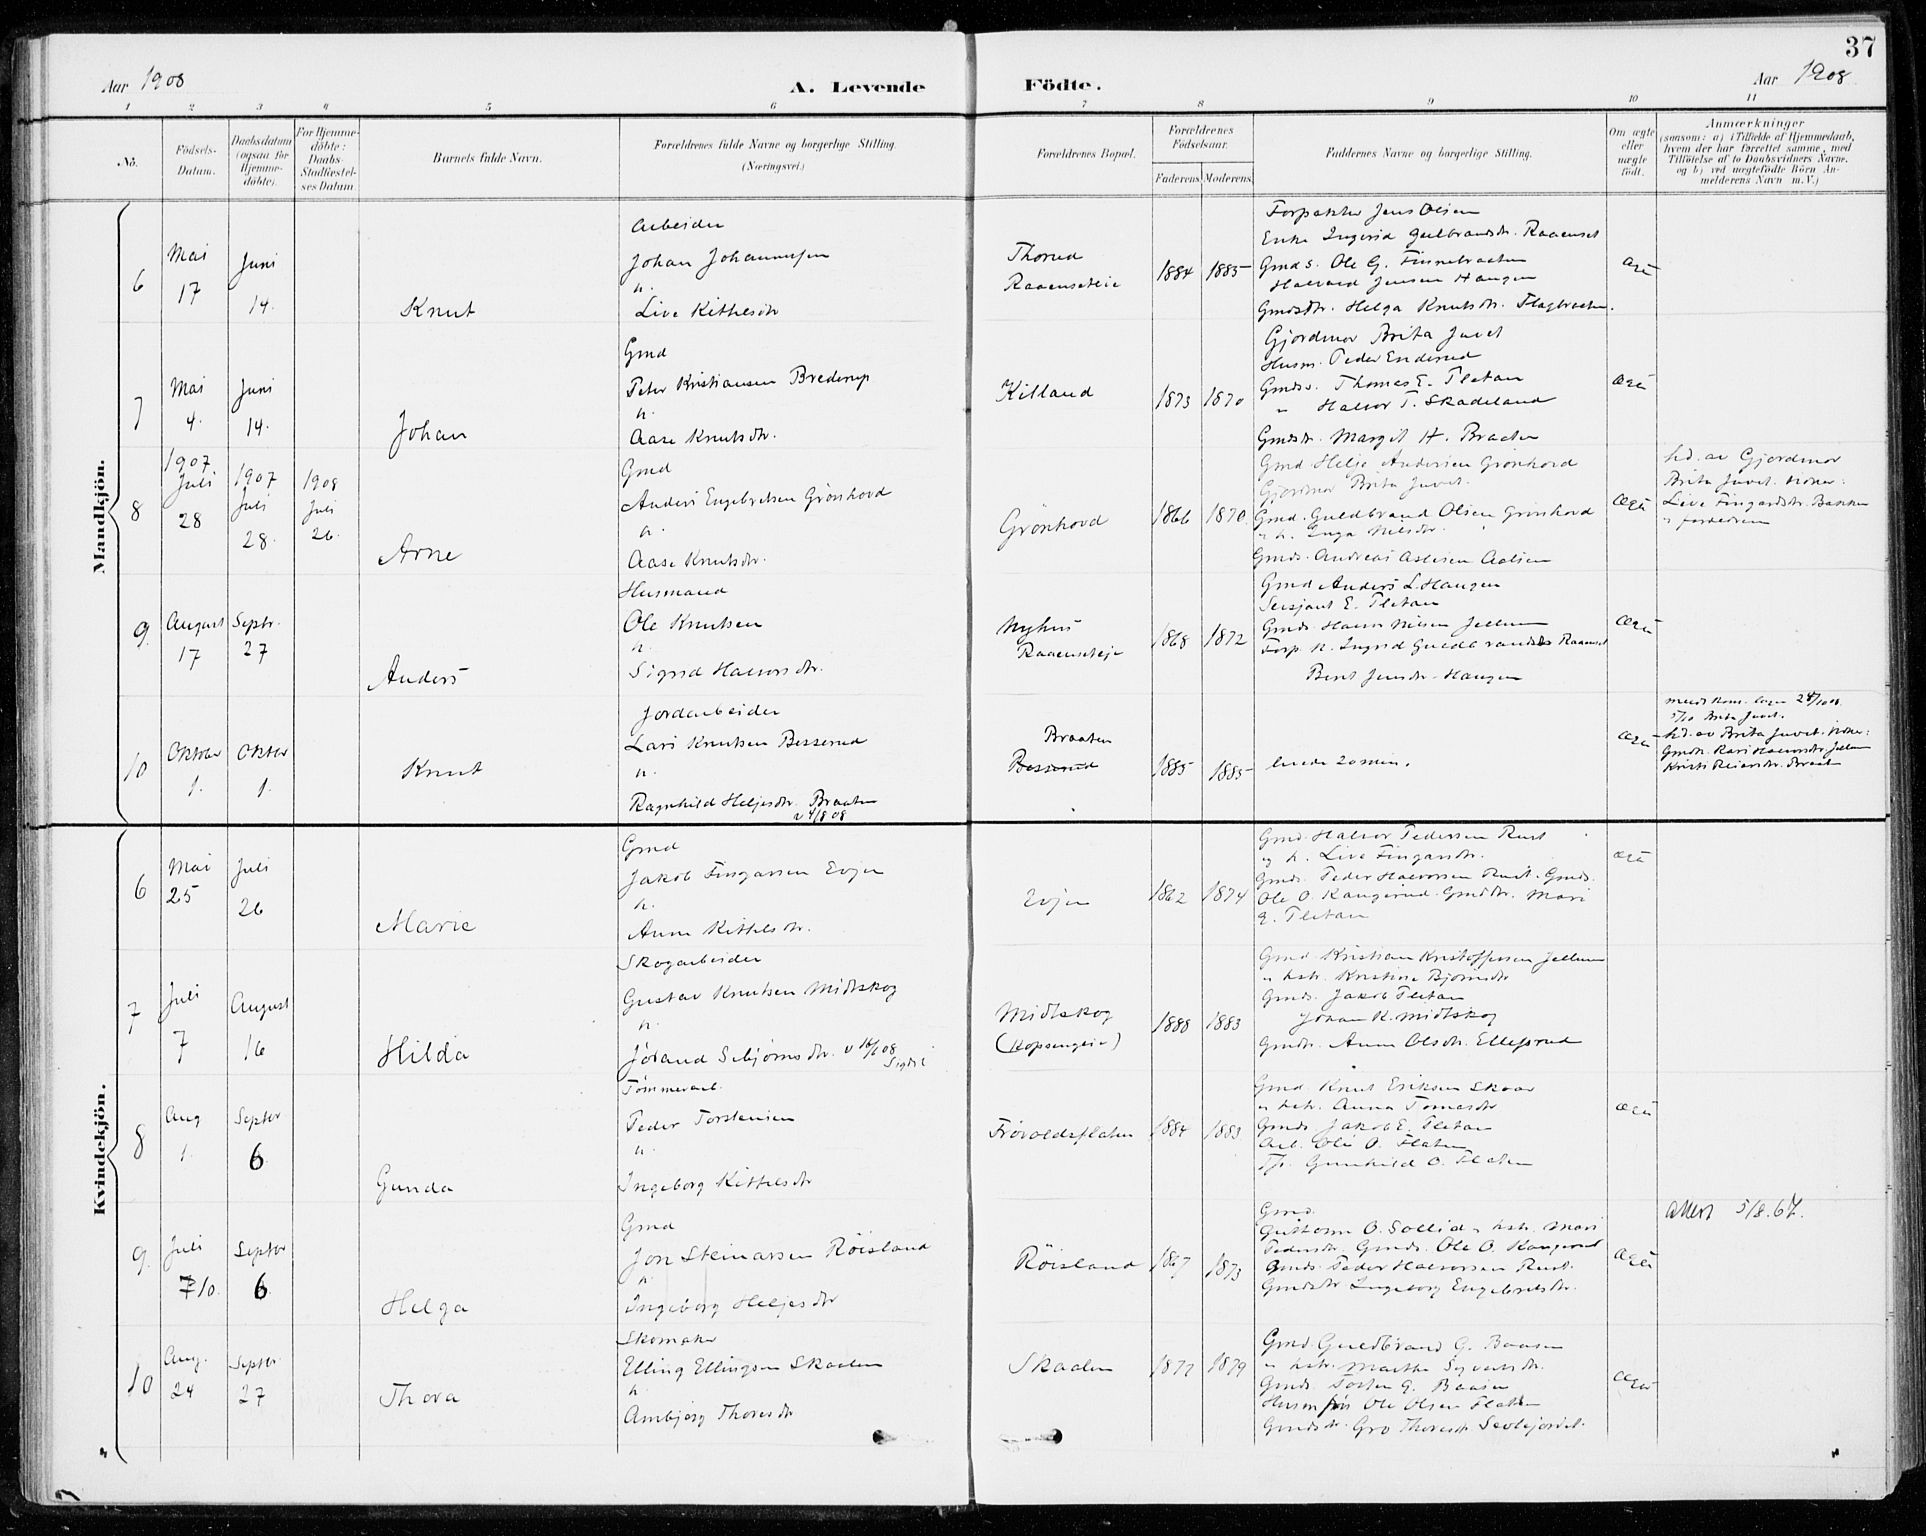 37
Aar 1908
A. Levende
Födte.
Aar 1908
1 2 3 4 5 6 7 8 9 10 11
No.
Födsels-Datum.
Daabsdatum (ogsaa for Hjemme-döbte).
For Hjemme-döbte: Daabs-Stadfæstel-ses Datum
Barnets fulde Navn.
Forældrenes fulde Navne og borgerlige Stilling.
(Næringsvei.)
Forældrenes Bopæl.
Forældrenes Födselsaar.
Faderens Moderens
Faddernes Navne og borgerlige Stilling.
Om ægte eller uægte födt.
Anmærkninger
(saasom: a) i Tilfælde af Hjemmedaab,
hvem der har forrettet samme, med
Tilföielse af to Daabsvidners Navne.
og b) ved uægtefödte Börn An-
melderens Navn m. V.)
Mandkjön.
6
Mai 17
Juni 14.
Knut
Arbeider
Johan Johannesen
h.
Live Kittilsdtr
Thorud
Raaenseteie
1884 1885
Forpakter Jens Olsen
Enke Ingerid Gulbrandsdtr. Raaenset
Gmds. Ole G. Finnebraaten
Halvard Jensen Haugen
Gmdsdtr. Helga Knutsdtr. Flagbraaten.
7
Mai 4.
Juni 14.
Johan
Gmd
Peter Kristiansen Brederup
h.
Aase Knutsdtr.
Killand
1873 1870
Gjordmor Brita Juvet
Husm. Peder Enderud
Gmds. Thomas E. Fletan
" Halvor T. Skadeland
Gmdsdtr. Margit H. Braaten
8
1907 Juli 28
1907 Juli 28.
1908 Juli 26.
Arne
Gmd
Anders Engebretsen Grønhovd
h.
Aase Knutsdtr.
Grønhovd
1866 1870
Gmd Helge Andersen Grønhovd
Gjordmor Brita Juvet.
Gmd. Guldbrand Olsen Grønhovd
" h. Inga Nilsdtr.
Gmds. Andreas Aslesen
hd. av Gjordmor
Brita Juvet.
Live Fingarsdtr. Bakken
9
August 17
Septr. 27
Anders
Husmand
Ole Knutsen
h.
Sigrid Halvorsdtr.
Nyhus
Raaenseteje
1868 1872
Gmd Anders L. Haugen
Sersjant E. Fletan
Gmds. Halvor Nilsen Jellum
Forp. k. Ingrid Guldbrandsdtr Raaenset
Berit Jensdtr. Haugen
10
Oktbr 1.
Oktbr 1.
Knut
Jordarbeider
Lars Knutsen Besserud
h.
Ragnhild Heljesdtr. Braaten
v 4/8 08
Braaten
Besserud
1885 1885
levede 20 min.
5/10 Brita Juvet.
hd. av Brita Juvet.
Kvindekjön.
6
Mai 25
Juli 26
Marie
Gmd
Jakob Fingarsen Evjen
h.
Anne Kittilsdtr.
Evjen
1862 1874
Gmd. Halvor Pedersen Rust
og h. Live Fingarsdtr.
Gmds. Peder Halvorsen Rust. Gmds.
Ole O. Kaugerud. Gmdsdtr. Mari
E. Fletan
7
Juli 7
August 16
Hilda
Skogarbeider
Gustav Knutsen Midtskog
h.
Jørand Sebjørnsdtr.
Sigdal
Midtskog
1888 1883
Gmd Kristian Kristoffersen Jellum
" hstr. Kristine Bjørnsdtr
Gmds. Jakob Fletan
Johan K. Midtskog
Gmdsdtr. Anne Olsdtr. Ellefsrud
8
Aug 1.
Septbr 6
Gunda
Tømmerarb.
Peder Torstensen
h.
Ingeborg Kittilsdtr
Frøvoldsflaten
1884 1883
Gmd. Knut Eriksen Skaar
" hstr. Anna Tomasdtr
Gmds. Jakob E. Fletan
Arb. Ole O. Flaten
Tjp. Gunhild O. Flaten
9.
Juli 10.
Septbr 6
Helga
Gmd
Jon Steinarsen Røisland
h.
Ingeborg Heljesdtr
Røisland
1867 1873
Gmd.
Guttorm O. Sollid " hstr. Mari
Pedersdtr. Gmds. Ole O. Kaugerud
Gmds. Peder Halvorsen Rust.
Gmdsdtr Ingeborg Engebretsdtr.
Attest 5/8. 67.
10
Aug. 24
Septbr. 27
Thora
Skomaker
Elling Ellingsen Skaalen
h.
Ambjørg Thoresdtr
Skaalen
1877 1879
Gmd. Guldbrand G. Baasen
" hstr. Marthe Syvertsdtr.
Gmds. Torsten G. Baasen
Ole Olsen Flaten
Gmdsdtr. Gro Thoresdtr